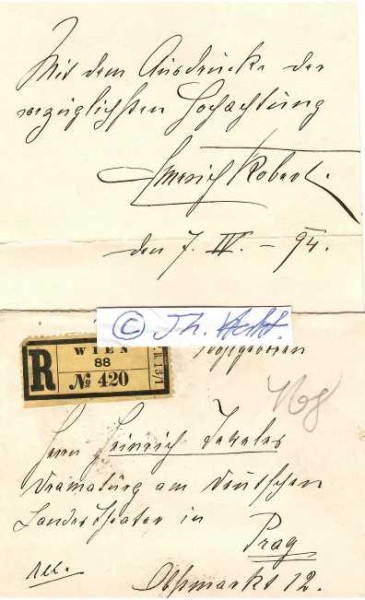 Mit dem Ausdrucke der
vorzüglichsten Hochachtung
Emerich Robert.
den 7. IV. – 94.
© Th.
R
WIEN
88
№ 420
Wohlgeboren
468
Herrn Heinrich Teweles
Dramaturg am Deutschen
Landestheater in
Prag
rec.
Obstmarkt 12.